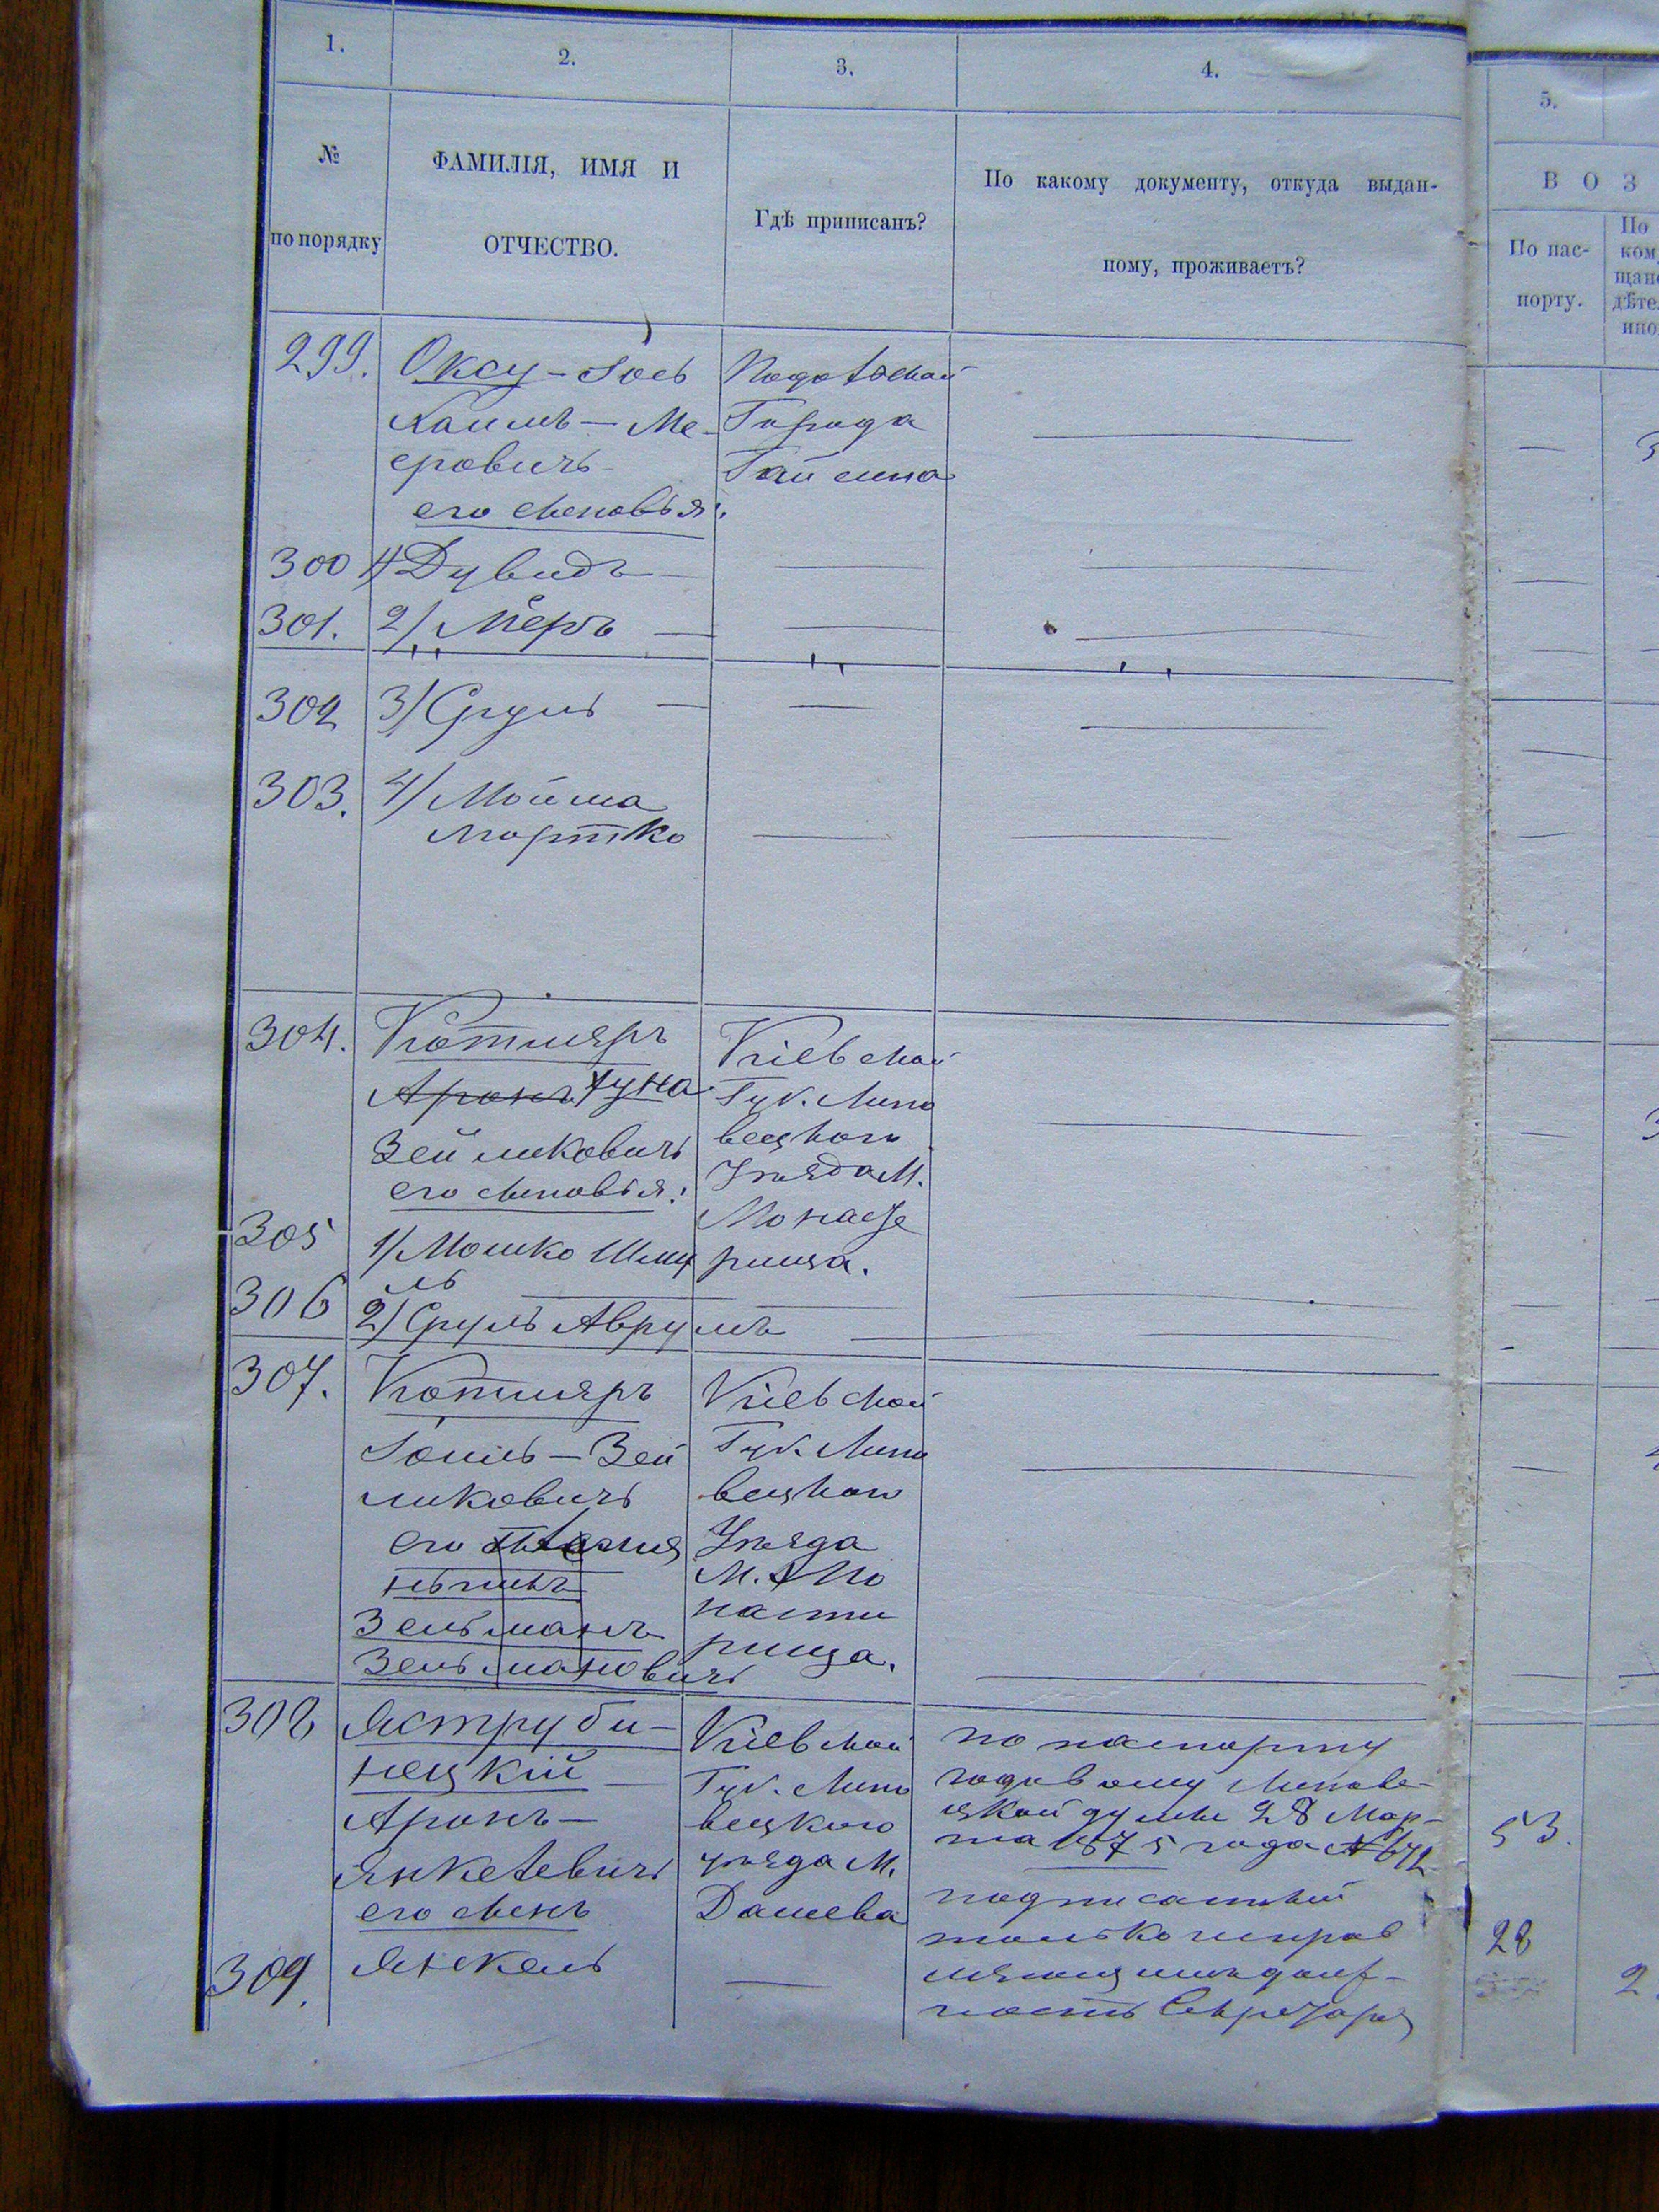 1. 2. 3. 4. 5.
№ по порядку
ФАМИЛІЯ, ИМЯ И
ОТЧЕСТВО.
Гдѣ приписанъ?
По какому документу, откуда выдан-
ному, проживаетъ?
В О З
По пас-
порту.
По
ком
щан
дѣте
ино
299. Оксу - Іось
Хаимъ - Ме-
еровичъ
его сыновья:
Подольской
Города
Гайсина
300 1) Дувидъ
301. 2) Меръ
302 3) Сруль
303. 4) Мойша
Мортко
304. Котляръ
Аронъ Зуна
Зейликовичъ
его сыновья:
Кіевской
Губ. Липо
вецкого
Уѣзда М.
Монасте
рища.
305 1/ Мошко Шму
ль
306 2) Сруль Аврумъ
307. Котляръ
Іоиль - Зей
ликовичъ
его
Зельманъ
Зельмановичъ
Кіевской
Губ. Липо
вецкого
Уѣзда
М. Мо
насти
рища.
308 Яструби-
нецкій
Аронъ-
Янкелевичъ
его сынъ
Кіевской
Губ. Липо
вецкого
уѣзда М.
Дашева
по паспорту
годовому Липове-
цкой думы 28 Мар-
та 1875 года № 672
подписанный
только исправ
ляющимъ долж-
ность Секретаря
53.
309. Янкель
28
2